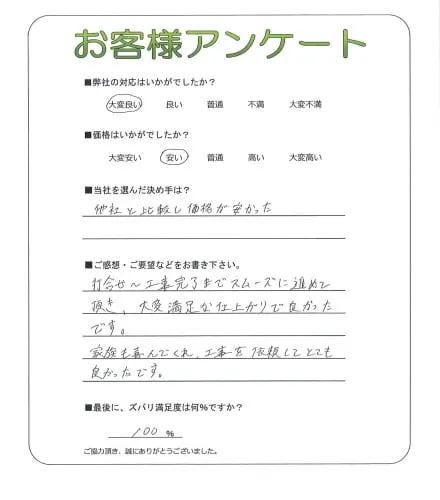 お客様アンケート
■弊社の対応はいかがでしたか？
大変良い 良い 普通 不満 大変不満
■価格はいかがでしたか？
大変安い 安い 普通 高い 大変高い
■当社を選んだ決め手は？
他社と比較し価格が安かった
■ご感想・ご要望などをお書き下さい。
打合せ～工事完了までスムーズに進めて
頂き、大変満足な仕上がりで良かった
です。
家族も喜んでくれ、工事を依頼してとても
良かったです。
■最後に、ズバリ満足度は何%ですか？
100 %
ご協力頂き、誠にありがとうございました。